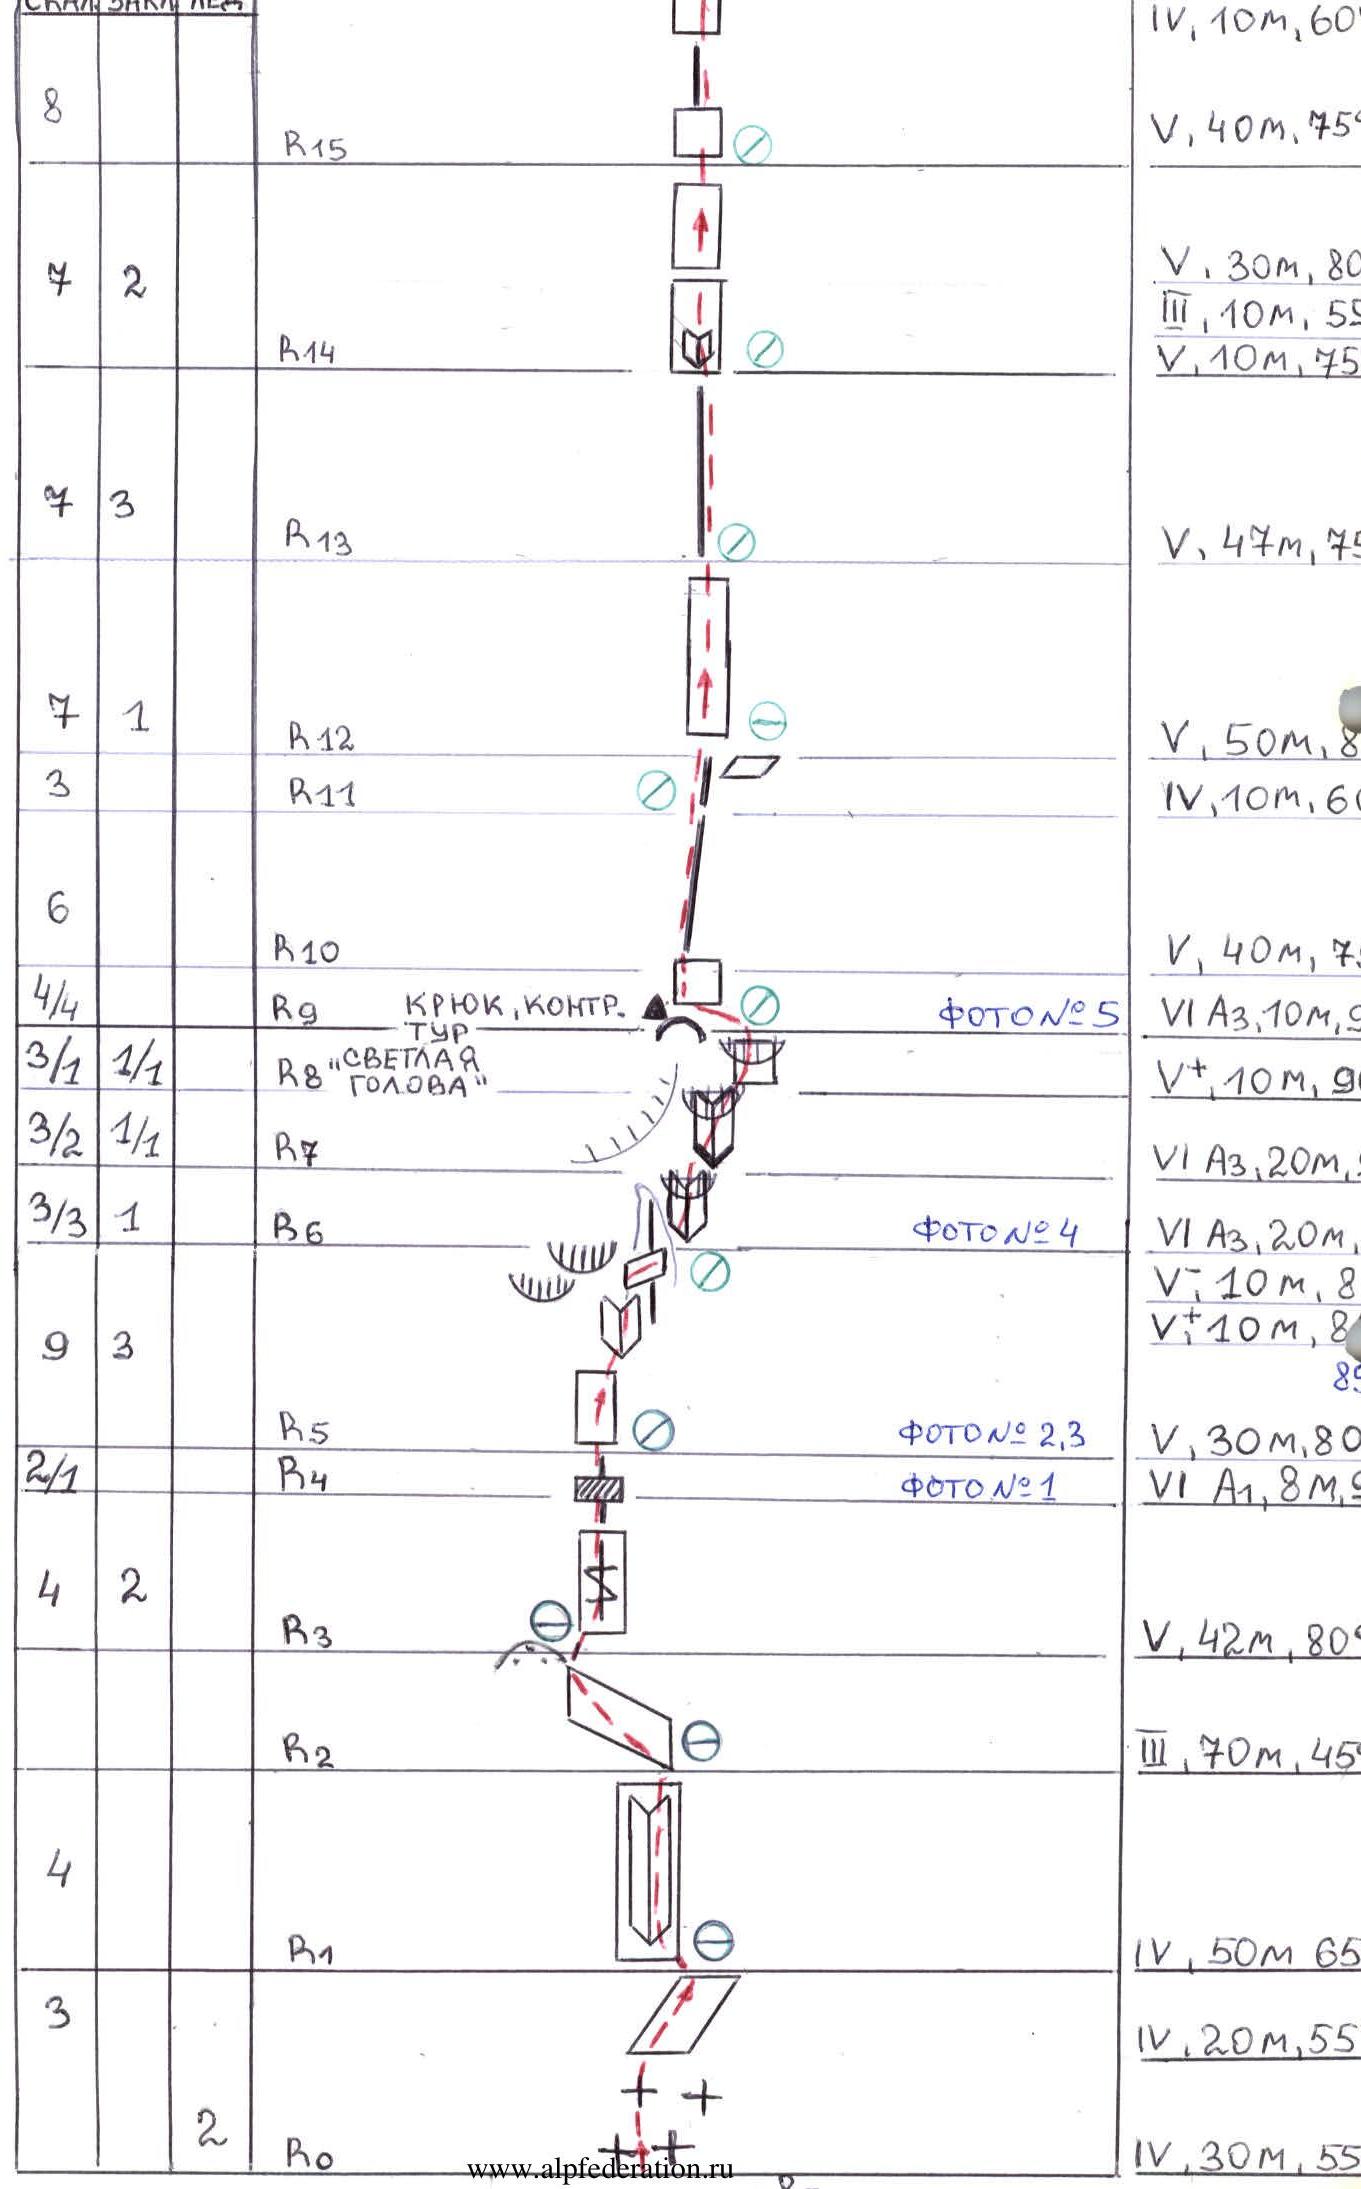 СКАЛ ЗАКЛ ЛЕД
IV, 10м, 60°
8
V, 40м, 75°
R15
V, 30м, 80
7 2
III, 10м, 55
R14
V, 10м, 75
7 3
R13
V, 47м, 75
7 1
R12
V, 50м, 8
3
R11
IV, 10м, 60
6
R10
V, 40м, 75
4/4
R9 КРЮК, КОНТР. ТУР
ФОТО № 5
VI A3, 10м, 9
3/1 1/1
R8 "СВЕТЛАЯ ГОЛОВА"
V+, 10м, 90
3/2 1/1
R7
VI A3, 20м,
3/3 1
R6
ФОТО № 4
VI A3, 20м,
V-, 10м, 8
V+, 10м, 8
9 3
85
R5
ФОТО № 2,3
V, 30м, 80
2/1
R4
ФОТО № 1
VI A1, 8м, 9
4 2
R3
V, 42м, 80°
R2
III, 70м, 45°
4
R1
IV, 50м 65
3
IV, 20м, 55
2
R0
IV, 30м, 55
www.alpfederation.ru